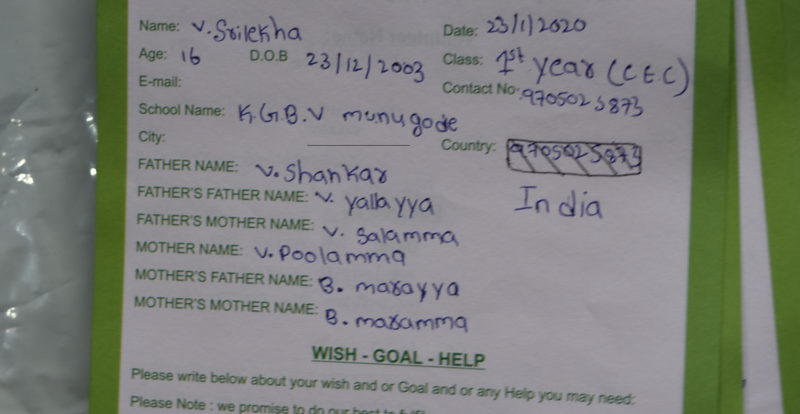 Name: V. Srilekha Date: 23/1/2020
Age: 16 D.O.B 23/12/2003 Class: 1st year (C E C)
E-mail: Contact No: 9705025873
School Name: K.G.B.V munugode
City: Country: 9705025873
India
FATHER NAME: V. Shankar
FATHER'S FATHER NAME: V. yallayya
FATHER'S MOTHER NAME: V. Salamma
MOTHER NAME: V. Poolamma
MOTHER'S FATHER NAME: B. marayya
MOTHER'S MOTHER NAME: B. maramma
WISH - GOAL - HELP
Please write below about your wish and or Goal and or any Help you may need:
Please Note : we promise to do our best to